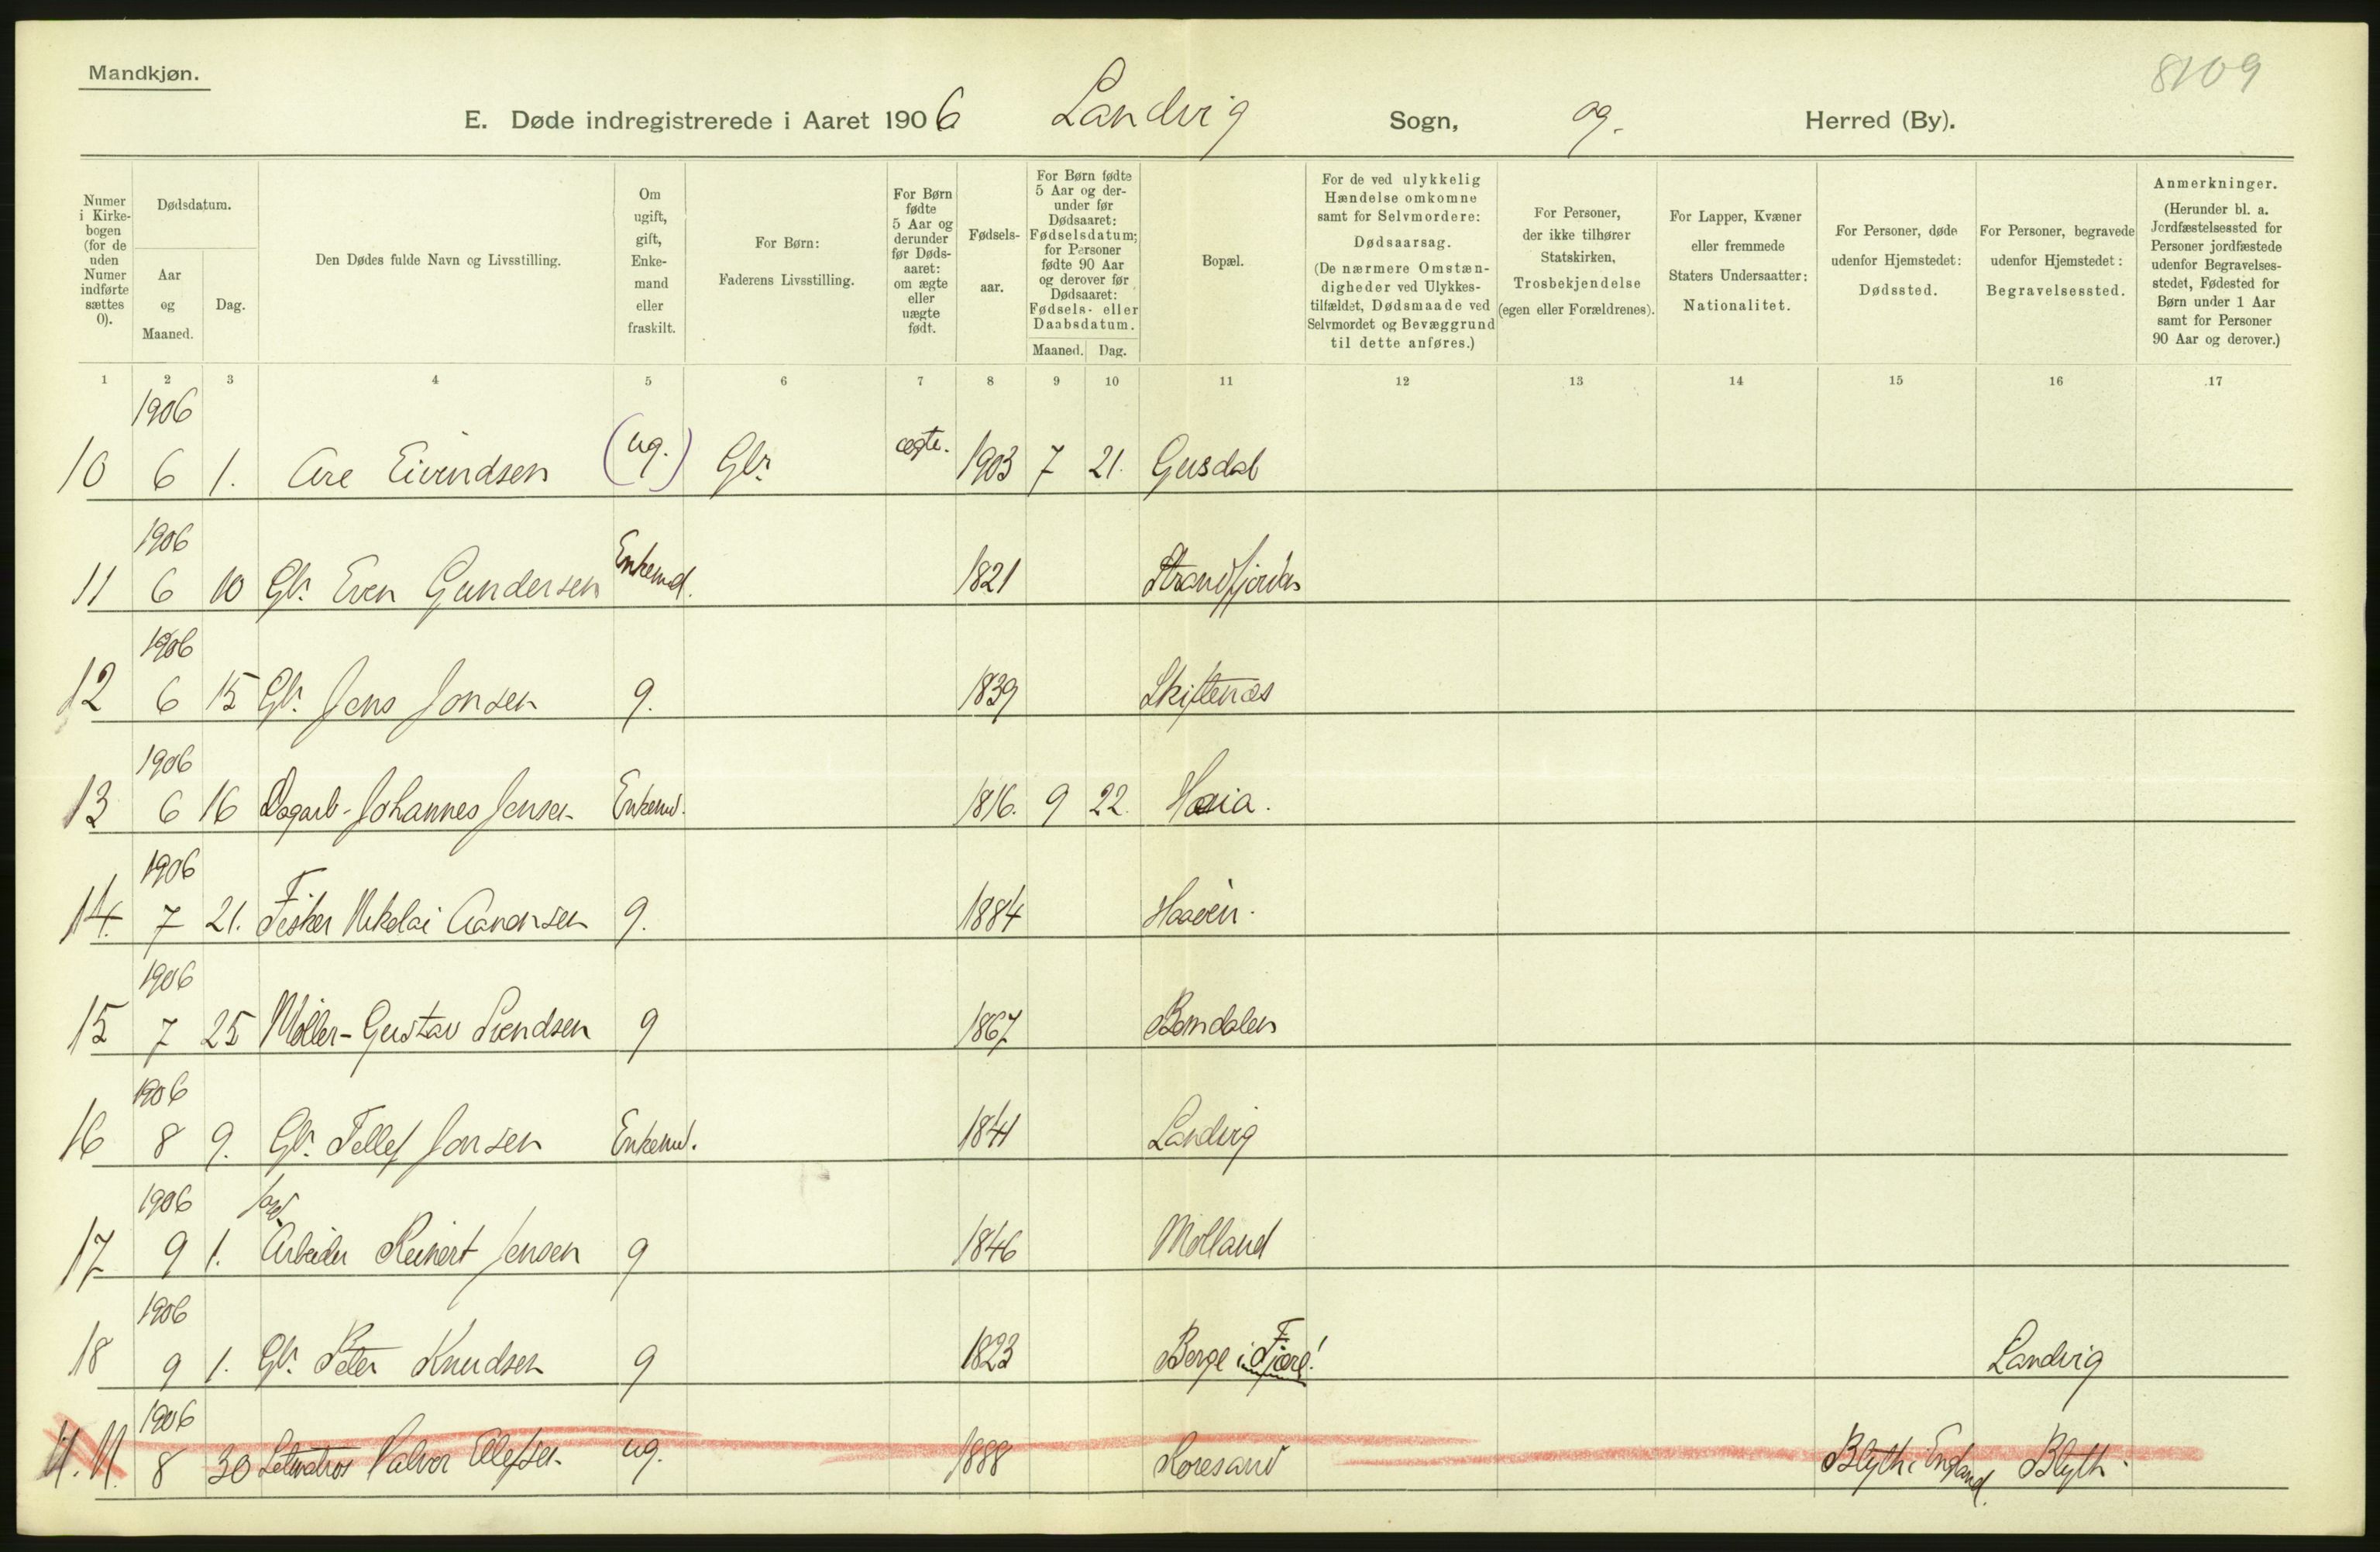 Mandkjøn.
8109
E. Døde indregistrerede i Aaret 1906 Landvig Sogn, og. Herred (By).
Numer i Kirkebogen (for de uden Numer indførte sættes 0).
Dødsdatum.
Aar og Maaned.
Dag.
Den Dødes fulde Navn og Livsstilling.
Om ugift, gift, Enkemand eller fraskilt.
For Børn: Faderens Livsstilling.
For Børn fødte 5 Aar og derunder før Dødsaaret: om ægte eller uægte født.
Fødselsaar.
For Børn fødte 5 Aar og derunder før Dødsaaret: Fødselsdatum; for Personer fødte 90 Aar og derover før Dødsaaret: Fødsels- eller Daabsdatum.
Maaned. Dag.
Bopæl.
For de ved ulykkelig Hændelse omkomne samt for Selvmordere: Dødsaarsag. (De nærmere Omstændigheder ved Ulykkestilfældet, Dødsmaade ved Selvmordet og Bevæggrund til dette anføres.)
For Personer, der ikke tilhører Statskirken, Trosbekjendelse (egen eller Forældrenes).
For Lapper, Kvæner eller fremmede Staters Undersaatter: Nationalitet.
For Personer, døde udenfor Hjemstedet: Dødssted.
For Personer, begravede udenfor Hjemstedet: Begravelsessted.
Anmerkninger. (Herunder bl. a. Jordfæstelsessted for Personer jordfæstede udenfor Begravelsesstedet, Fødested for Børn under 1 Aar samt for Personer 90 Aar og derover.)
1 2 3 4 5 6 7 8 9 10 11 12 13 14 15 16 17
1906
10 6 1. Are Eivindsen (ug.) Gbr. ægte. 1903 7 21. Gusdal
1906
11 6 10 Gbr. Even Gundersen Enkemd. 1821 Strandfjorden
1906
12 6 15 Gbr. Jens Jonsen g. 1839 Skiftenæs
1906
13 6 16 Dagarb. Johannes Jensen Enkemd. 1816. 9 22.
1906
14. 7 21. Fisker Nikolai Aanonsen g. 1884
1906
15 7 25 Møller- Gustav Svendsen g 1867 Bomdalen
1906
16 8 9. Gbr. Tellef Jonsen Enkemd. 1841 Landvig
1906
17 9 1. Arbeider Reinert Jensen g 1846 Molland
1906
18 9 1. Gbr. Peter Knudsen g 1823 Berge i Fjære! Landvig
1906
8 30 Letmatros Halvor Ellefsen ug. 1888 Roresand Blyth i England. Blyth.